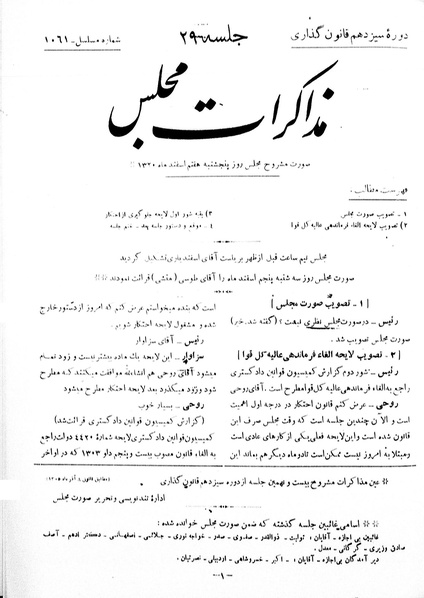 دورهٔ سیزدهم قانون گذاری
جلسه ۲۹
شماره مسلسل - ۱۰۶۱
مذاکرات مجلس
صورت مشروح مجلس روز پنجشنبه هفتم اسفند ماه ۱۳۲۰
فهرست مطالب:
۱ - تصویب صورت مجلس
۲) تصویب لایحه الغاء فرماندهی عالیه کل قوا
۳) بقیه شور اول لایحه جلوگیری از احتکار
۴ - موقع و دستور جلسه بعد - ختم جلسه
مجلس نیم ساعت قبل از ظهر بریاست آقای اسفندیاری تشکیل گردید
صورت مجلس روز سه شنبه پنجم اسفند ماه را آقای طوسی (منشی) قرائت نمودند
[ ۱ - تصویب صورت مجلس ]
رئیس - در صورت مجلس نظری نیست؟ (گفته شد - خیر)
صورت مجلس تصویب شد.
[ ۲ - تصویب لایحه الغاء فرماندهی عالیه کل قوا ]
رئیس - شور دوم گزارش کمیسیون قوانین دادگستری
راجع به الغاء فرماندهی عالیه کل قوا مطرح است. آقای روحی
روحی - عرض کنم قانون احتکار در درجه اول اهمیت
است و الآن چندین جلسه است که وقت مجلس صرف این
قانون شده است و این لایحه فعلی یکی از کارهای عادی است
و مبتلا به امروز نیست ممکن است تا دو ماه دیگر هم بماند این
است که بنده میخواستم عرض کنم که امروز از دستور خارج
شده و مشغول لایحه احتکار شویم.
رئیس - آقای سزاوار
سزاوار - این لایحه یک ماده بیشتر نیست و زود تمام
میشود آقای روحی هم انشاءالله موافقت میکنند که مطرح
شود و زود میگذرد بعد لایحه احتکار مطرح میشود
روحی - بسیار خوب
(گزارش کمیسیون قوانین دادگستری قرائت شد)
کمیسیون قوانین دادگستری لایحه شمارهٔ ۴۴۲۰ دولت راجع
به الغاء قانون مصوب بیست و پنجم دلو ۱۳۰۳ که در اواخر
※ عین مذاکرات مشروح بیست و نهمین جلسه از دوره سیزدهم قانون گذاری
اداره تندنویسی و تحریر صورت مجلس
※ اسامی غائبین جلسه گذشته که ضمن صورت مجلس خوانده شده:
غائبین بی اجازه - آقایان: تولیت - ذوالقدر - صدوی - صدر - خواجه نوری - جلائی - اصفهانی - دکتر ادهم - آصف
صادق وزیری - گرگانی - معدل.
دیر آمدگان بی اجازه - آقایان: اکبر - خسروشاهی - اردبیلی - نصرتیان.
- ۱ -